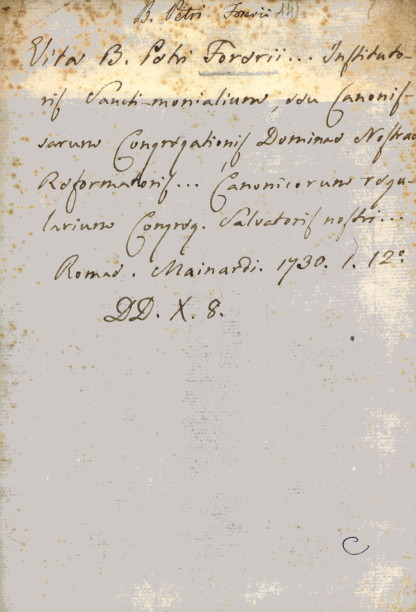 B. Petri Forerii
Vita B. Petri Forerii... Instituto-
ris Sancti-monialium, seu Canonis-
sarum Congregationis Dominae Nostrae
Reformatoris... Canonicorum regu-
larium Congreg. Salvatoris nostri...
Romae. Mainardi. 1730. 1. 12°.
DD. X. 8.
C